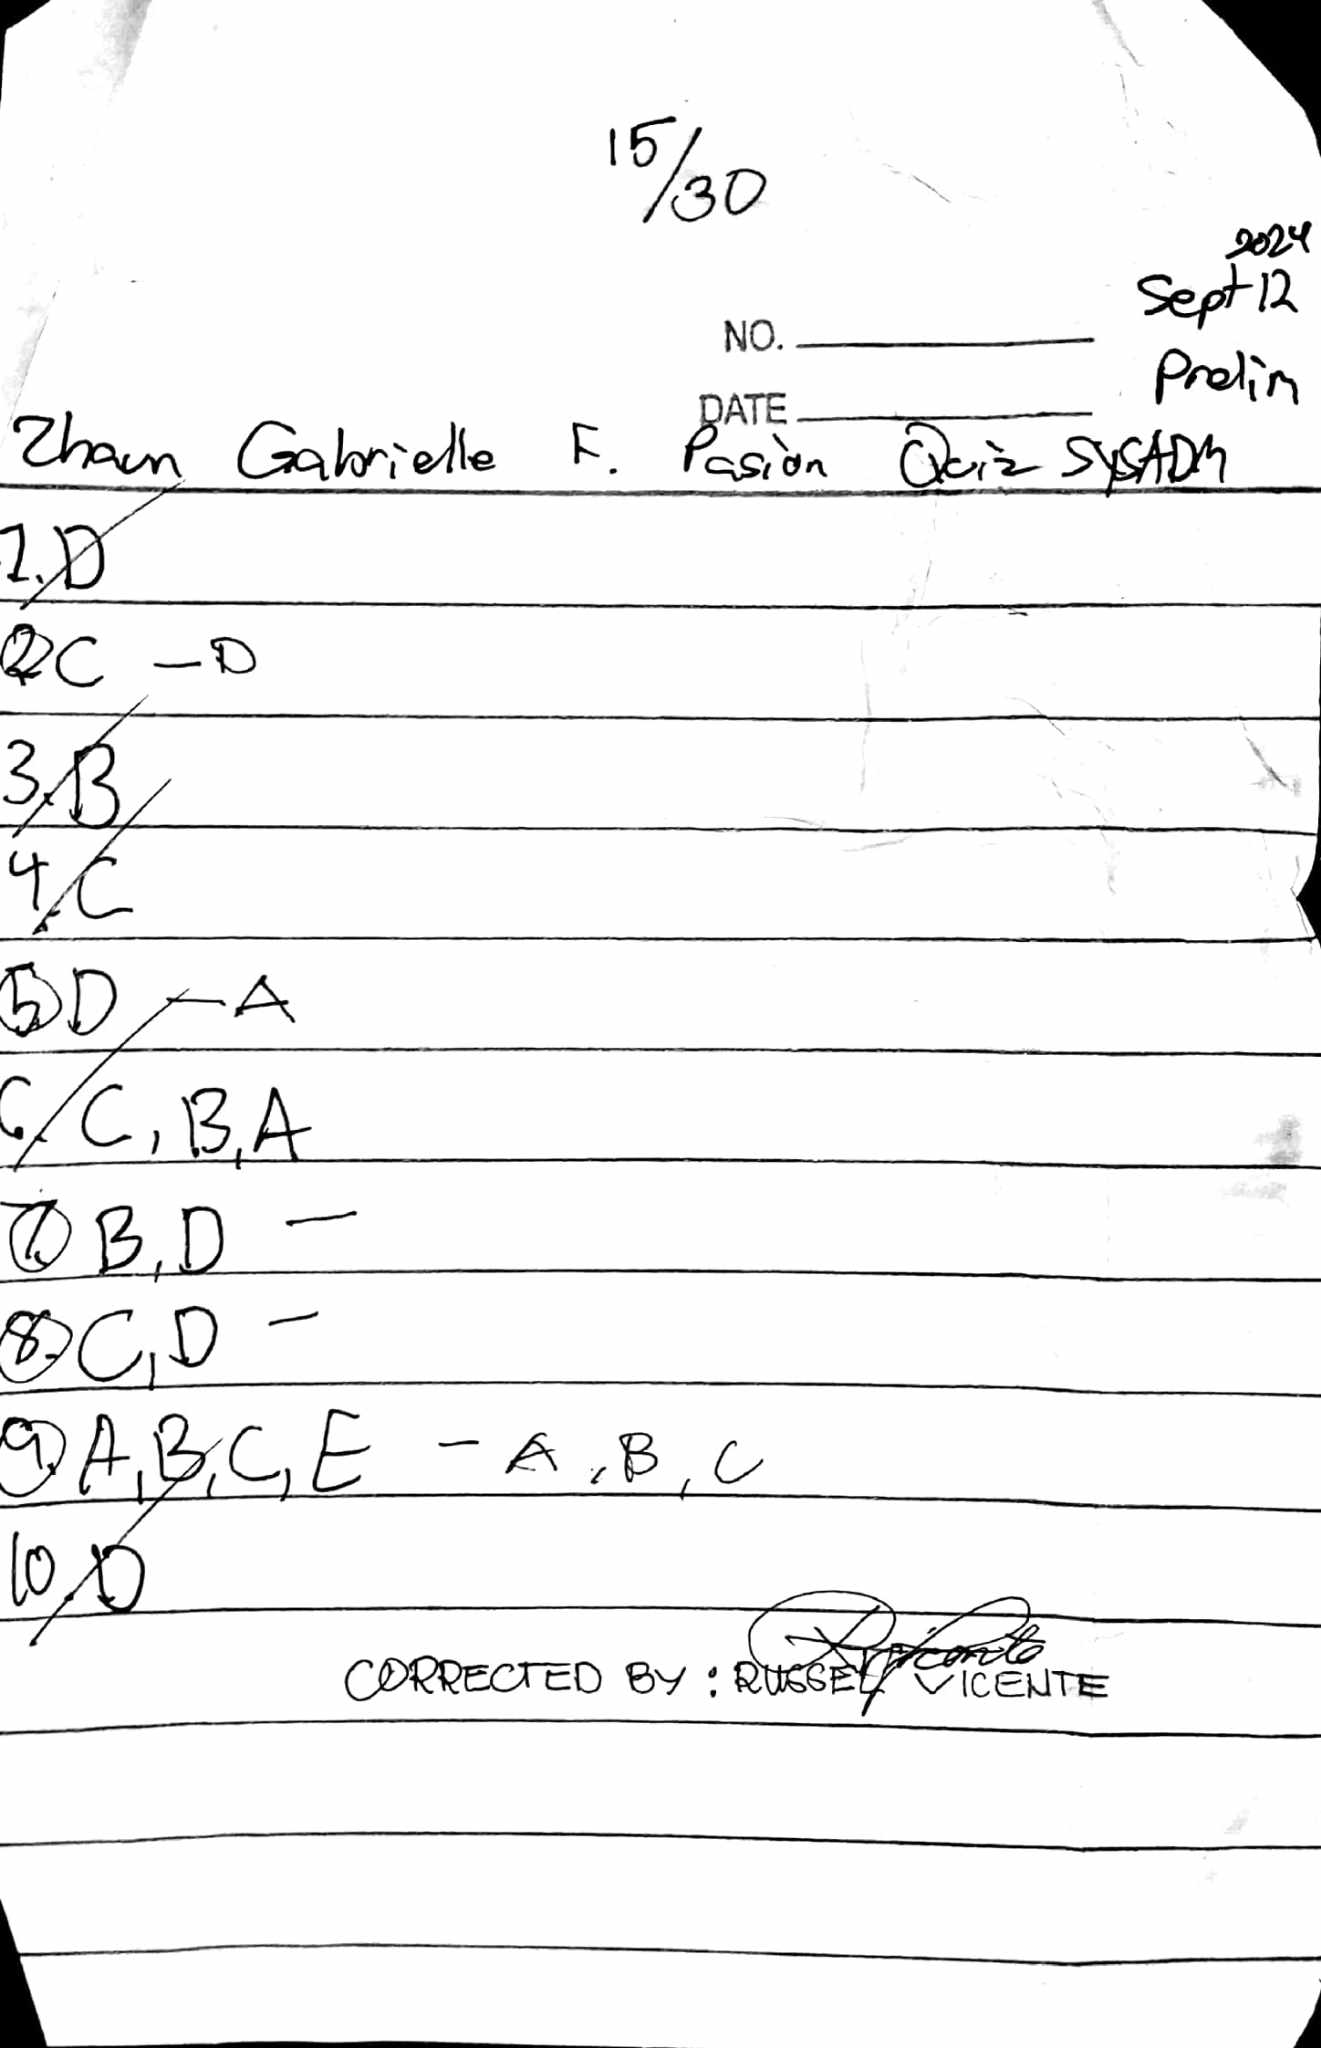 15/30
2024
Sept 12
NO.
Prelim
DATE
Zhaun Gabrielle F. Pasion Quiz SYSADM
1. D
2. C - D
3. B
4. C
5. D - A
6. C, B, A
7. B, D -
8. C, D -
9. A, B, C, E - A, B, C
10. D
CORRECTED BY: RUSSEL VICENTE